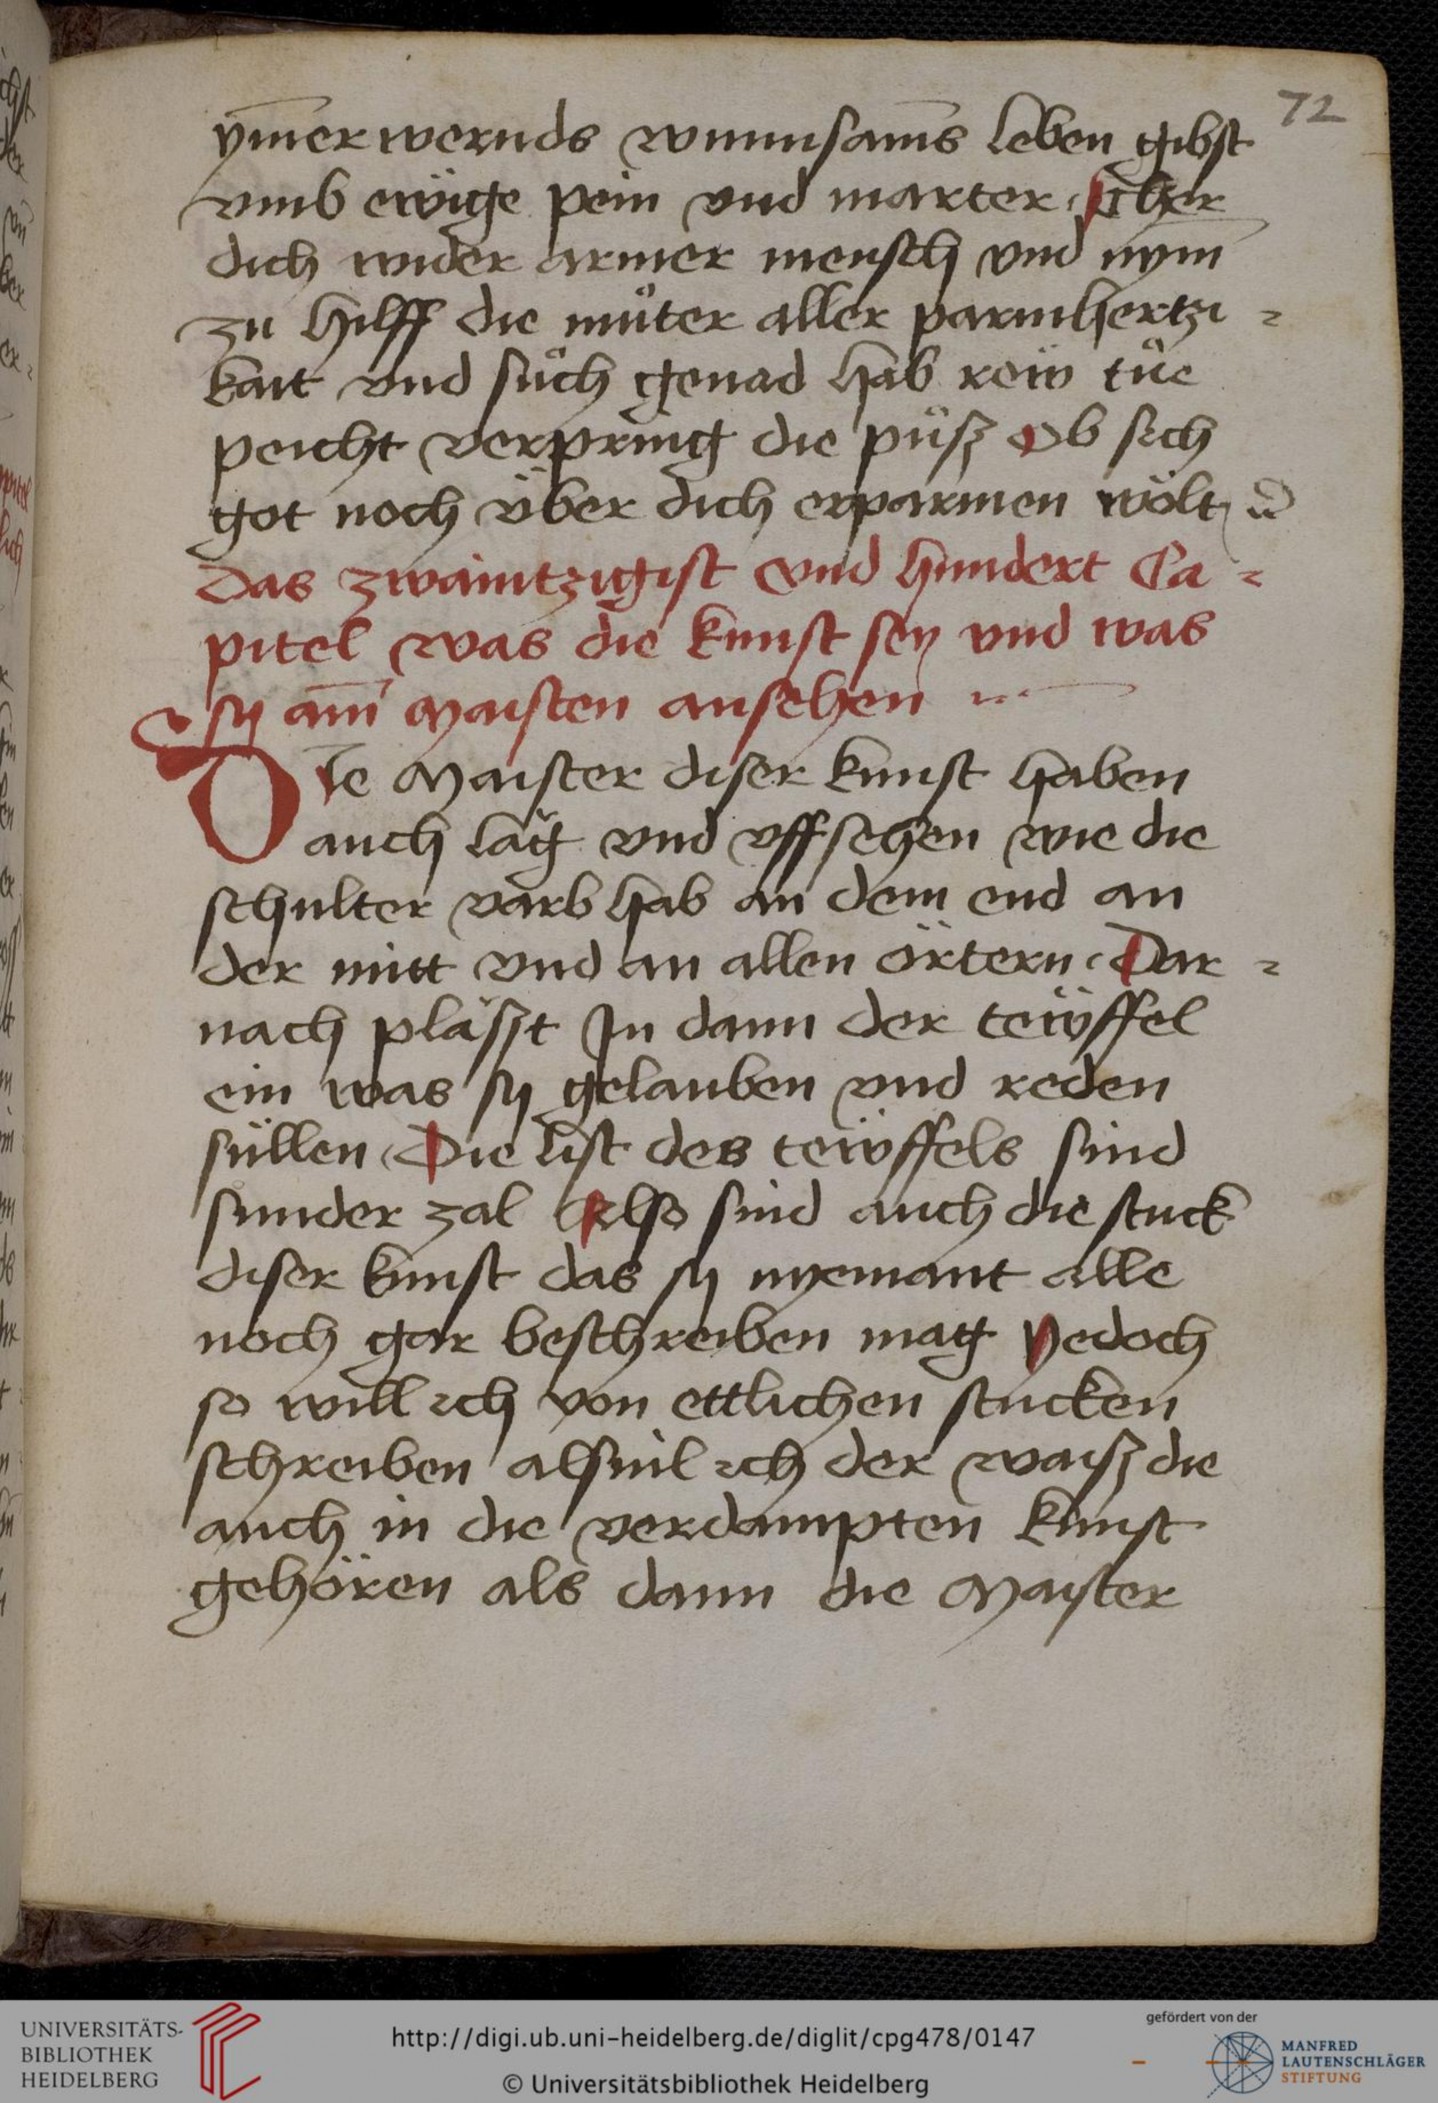 72
ÿm̄er wernds wunnsam̄s leben gibst
vmb ewige pein vnd marter Ker
dich wider armer mensch vnd nÿm̄
zu hilff die můter aller parmhertzi =
kait vnd sůch genad hab rew tůe
peicht verpring die půsz Ob sich
got noch über dich erparmen wölt
Das zwaintzigist vnd hundert Ca =
pitel was die kunst seÿ vnd was
sÿ am̄ Maisten ansehen
Die Maister diser kunst haben
auch lăg vnd vffsehen wie die
schulter varb hab an dem end an
der mitt vnd an allen örtern Dar =
nach pläszt In dann der teẅffel
ein was sÿ gelauben vnd reden
süllen Die list des teẅffels sind
sunder zal Also sind auch die stuck
diser kunst das sÿ nyemant alle
noch gar beschreiben mag Yedoch
so will ich von ettlichen stucken
schreiben alsuil ich der waisz die
auch in die verdampten kunst
gehören als dann die Maister
UNIVERSITÄTS-
BIBLIOTHEK
HEIDELBERG
http://digi.ub.uni-heidelberg.de/diglit/cpg478/0147
© Universitätsbibliothek Heidelberg
gefördert von der
MANFRED
LAUTENSCHLÄGER
STIFTUNG